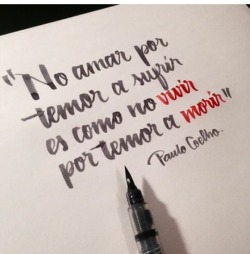 "No amar por
temor a sufrir
es como no vivir
por temor a morir"
Paulo Coelho.